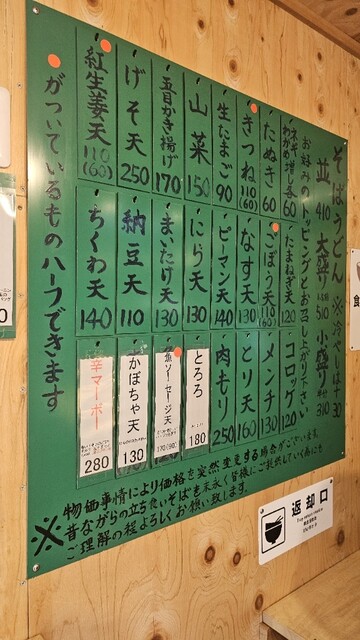 そばうどん ※冷やしは+30
並 410 大盛り 510 小盛り 310
お好みのトッピングとお召し上がり下さい
わかめ増し 60
たぬき 60
きつね 110 (60)
生たまご 90
山菜 150
五目かき揚げ 170
げそ天 250
紅生姜天 110 (60)
たまねぎ天 120
ごぼう天 110 (60)
なす天 130
ピーマン天 140
にら天 130
まいたけ天 130
納豆天 110
ちくわ天 140
コロッケ 120
メンチ 130
とり天 160
肉もり 250
とろろ 180
魚ソーセージ天 170 (90)
かぼちゃ天 130
辛マーボー 280
がついているものハーフできます
※物価事情により価格を突然変更する場合がございます。
昔ながらの立ち食いそばを末永く皆様にご提供していく為にも
ご理解の程よろしくお願い致します。
返却口